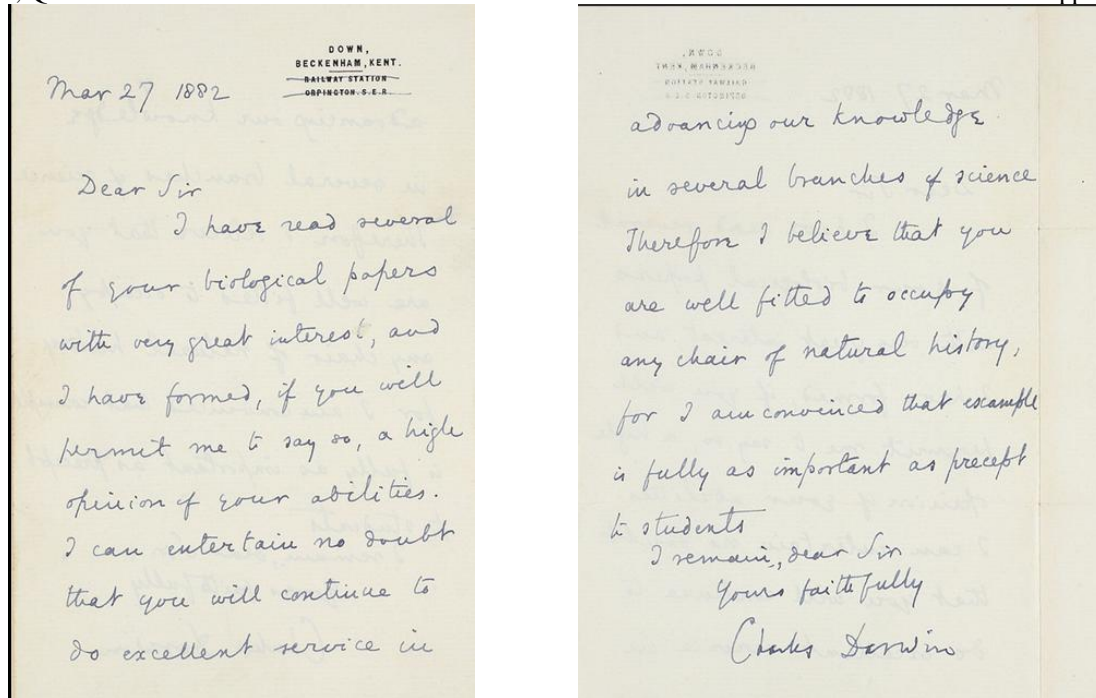 DOWN,
BECKENHAM, KENT.
RAILWAY STATION
ORPINGTON. S.E.R.
Mar 27 1882
Dear Sir
I have read several
of your biological papers
with very great interest, and
I have formed, if you will
permit me to say so, a high
opinion of your abilities.
I can entertain no doubt
that you will continue to
do excellent service in
advancing our knowledge
in several branches of science
Therefore I believe that you
are well fitted to occupy
any chair of natural history,
for I am convinced that example
is fully as important as precept
to students
I remain, dear Sir
Yours faithfully
Charles Darwin